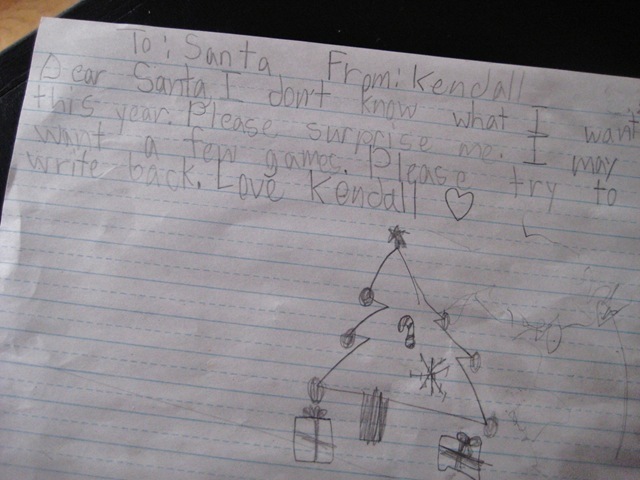 To: Santa From: Kendall
Dear Santa, I don't know what I want
this year. Please surprise me. I may
want a few games. Please try to
write back. Love Kendall